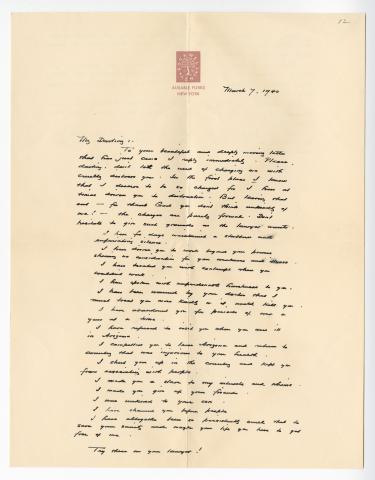 12
AUSABLE FORKS
NEW YORK
March 7, 1940
My Darling:
To your beautiful and deeply moving letter
that has just come I reply immediately. Please,
darling, don't talk the need of charging me with
cruelty destroy you. In the first place I know
that I deserve to be so charged for I have at
times driven you to desperation. But leaving that
out — for think God you don't think unkindly of
me! — the charges are purely formal. Don't
hesitate to give such grounds as the lawyer wants.
I have for days maintained a stubborn and
unforgiving silence.
I have driven you to work beyond your power
showing no consideration for your weakness and illness.
I have treated you with contempt when you
couldn't work.
I have spoken with unpardonable harshness to you.
I have been warned by your doctor that I
must treat you more kindly or it would kill you.
I have abandoned you for periods of over a
year at a time.
I have refused to visit you when you were ill
in Arizona.
I compelled you to leave Arizona and return to
country that was injurious to your health.
I shut you up in the country and kept you
from associating with people.
I made you a slave to my interests and whims.
I made you give up your friends.
I was untrue to your
I have shamed you before people
I have altogether been so persistently cruel that to
save your sanity and maybe your life you have to get
free of me.
Try these on your lawyer!